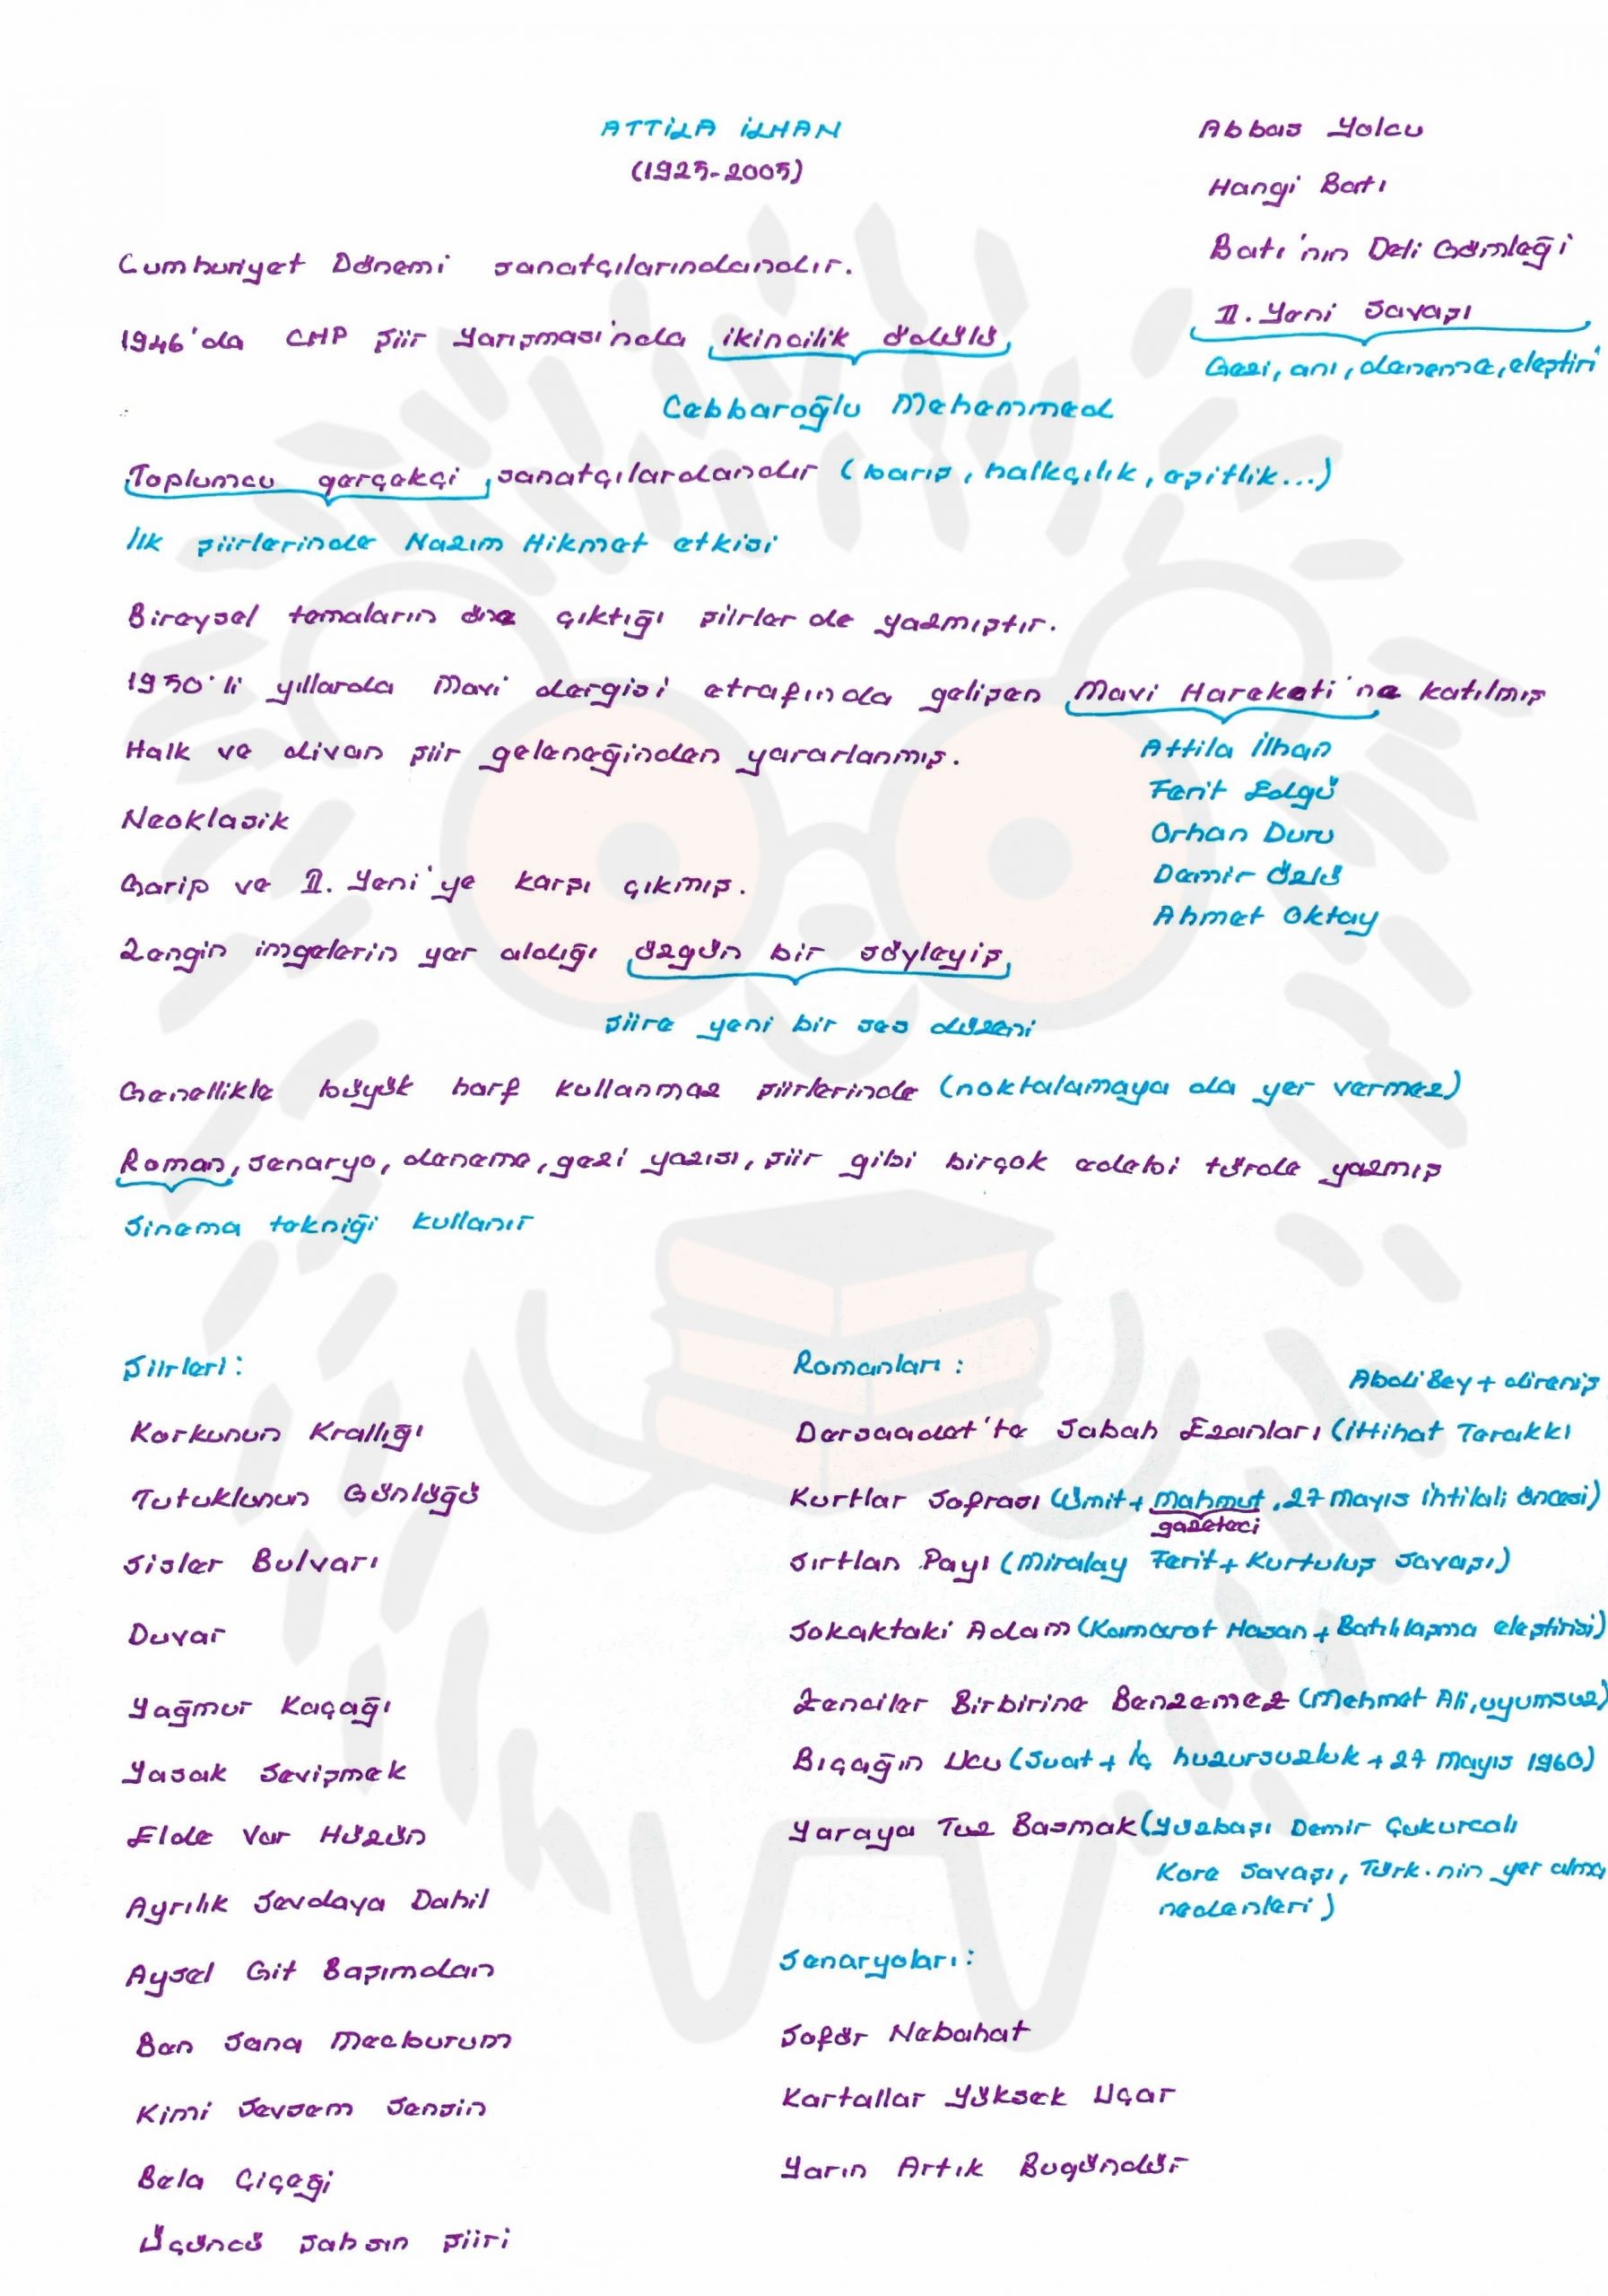 ATTİLA İLHAN
(1925-2005)
Abbas Yolcu
Hangi Batı
Batı'nın Deli Gömleği
II. Yeni Savaşı
Gezi, anı, deneme, eleştiri
Cumhuriyet Dönemi sanatçılarındandır.
1946'da CHP Şiir Yarışması'nda ikincilik ödülü
Cebbaroğlu Mehemmed
Toplumcu gerçekçi sanatçılardandır (barış, halkçılık, eşitlik...)
İlk şiirlerinde Nazım Hikmet etkisi
Bireysel temaların öne çıktığı şiirler de yazmıştır.
1950'li yıllarda Mavi dergisi etrafında gelişen Mavi Hareketi'ne katılmış
Attila İlhan
Ferit Edgü
Orhan Duru
Demir Özlü
Ahmet Oktay
Halk ve divan şiir geleneğinden yararlanmış.
Neoklasik
Garip ve II. Yeni'ye karşı çıkmış.
Zengin imgelerin yer aldığı özgün bir söyleyiş
şiire yeni bir ses düzeni
Genellikle büyük harf kullanmaz şiirlerinde (noktalamaya da yer vermez)
Roman, senaryo, deneme, gezi yazısı, şiir gibi birçok edebi türde yazmış
Sinema tekniği kullanır
Şiirleri:
Korkunun Krallığı
Tutuklunun Günlüğü
Sisler Bulvarı
Duvar
Yağmur Kaçağı
Yasak Sevişmek
Elde Var Hüzün
Ayrılık Sevdaya Dahil
Aysel Git Başımdan
Ben Sana Mecburum
Kimi Sevsem Sensin
Bela Çiçeği
Üçüncü Şahsın Şiiri
Romanları:
Abdi Bey + direniş
Dersaadet'te Sabah Ezanları (İttihat Terakki
Kurtlar Sofrası (Ümit + Mahmut, 27 Mayıs ihtilali öncesi)
gazeteci
Sırtlan Payı (Miralay Ferit + Kurtuluş Savaşı)
Sokaktaki Adam (Kamarot Hasan + Batılılaşma eleştirisi)
Zenciler Birbirine Benzemez (Mehmet Ali, uyumsuz)
Bıçağın Ucu (Suat + İç huzursuzluk + 27 Mayıs 1960)
Yaraya Tuz Basmak (Yüzbaşı Demir Çukurcalı
Kore Savaşı, Türk.nin yer alma
nedenleri)
Senaryoları:
Şoför Nebahat
Kartallar Yüksek Uçar
Yarın Artık Bugündür